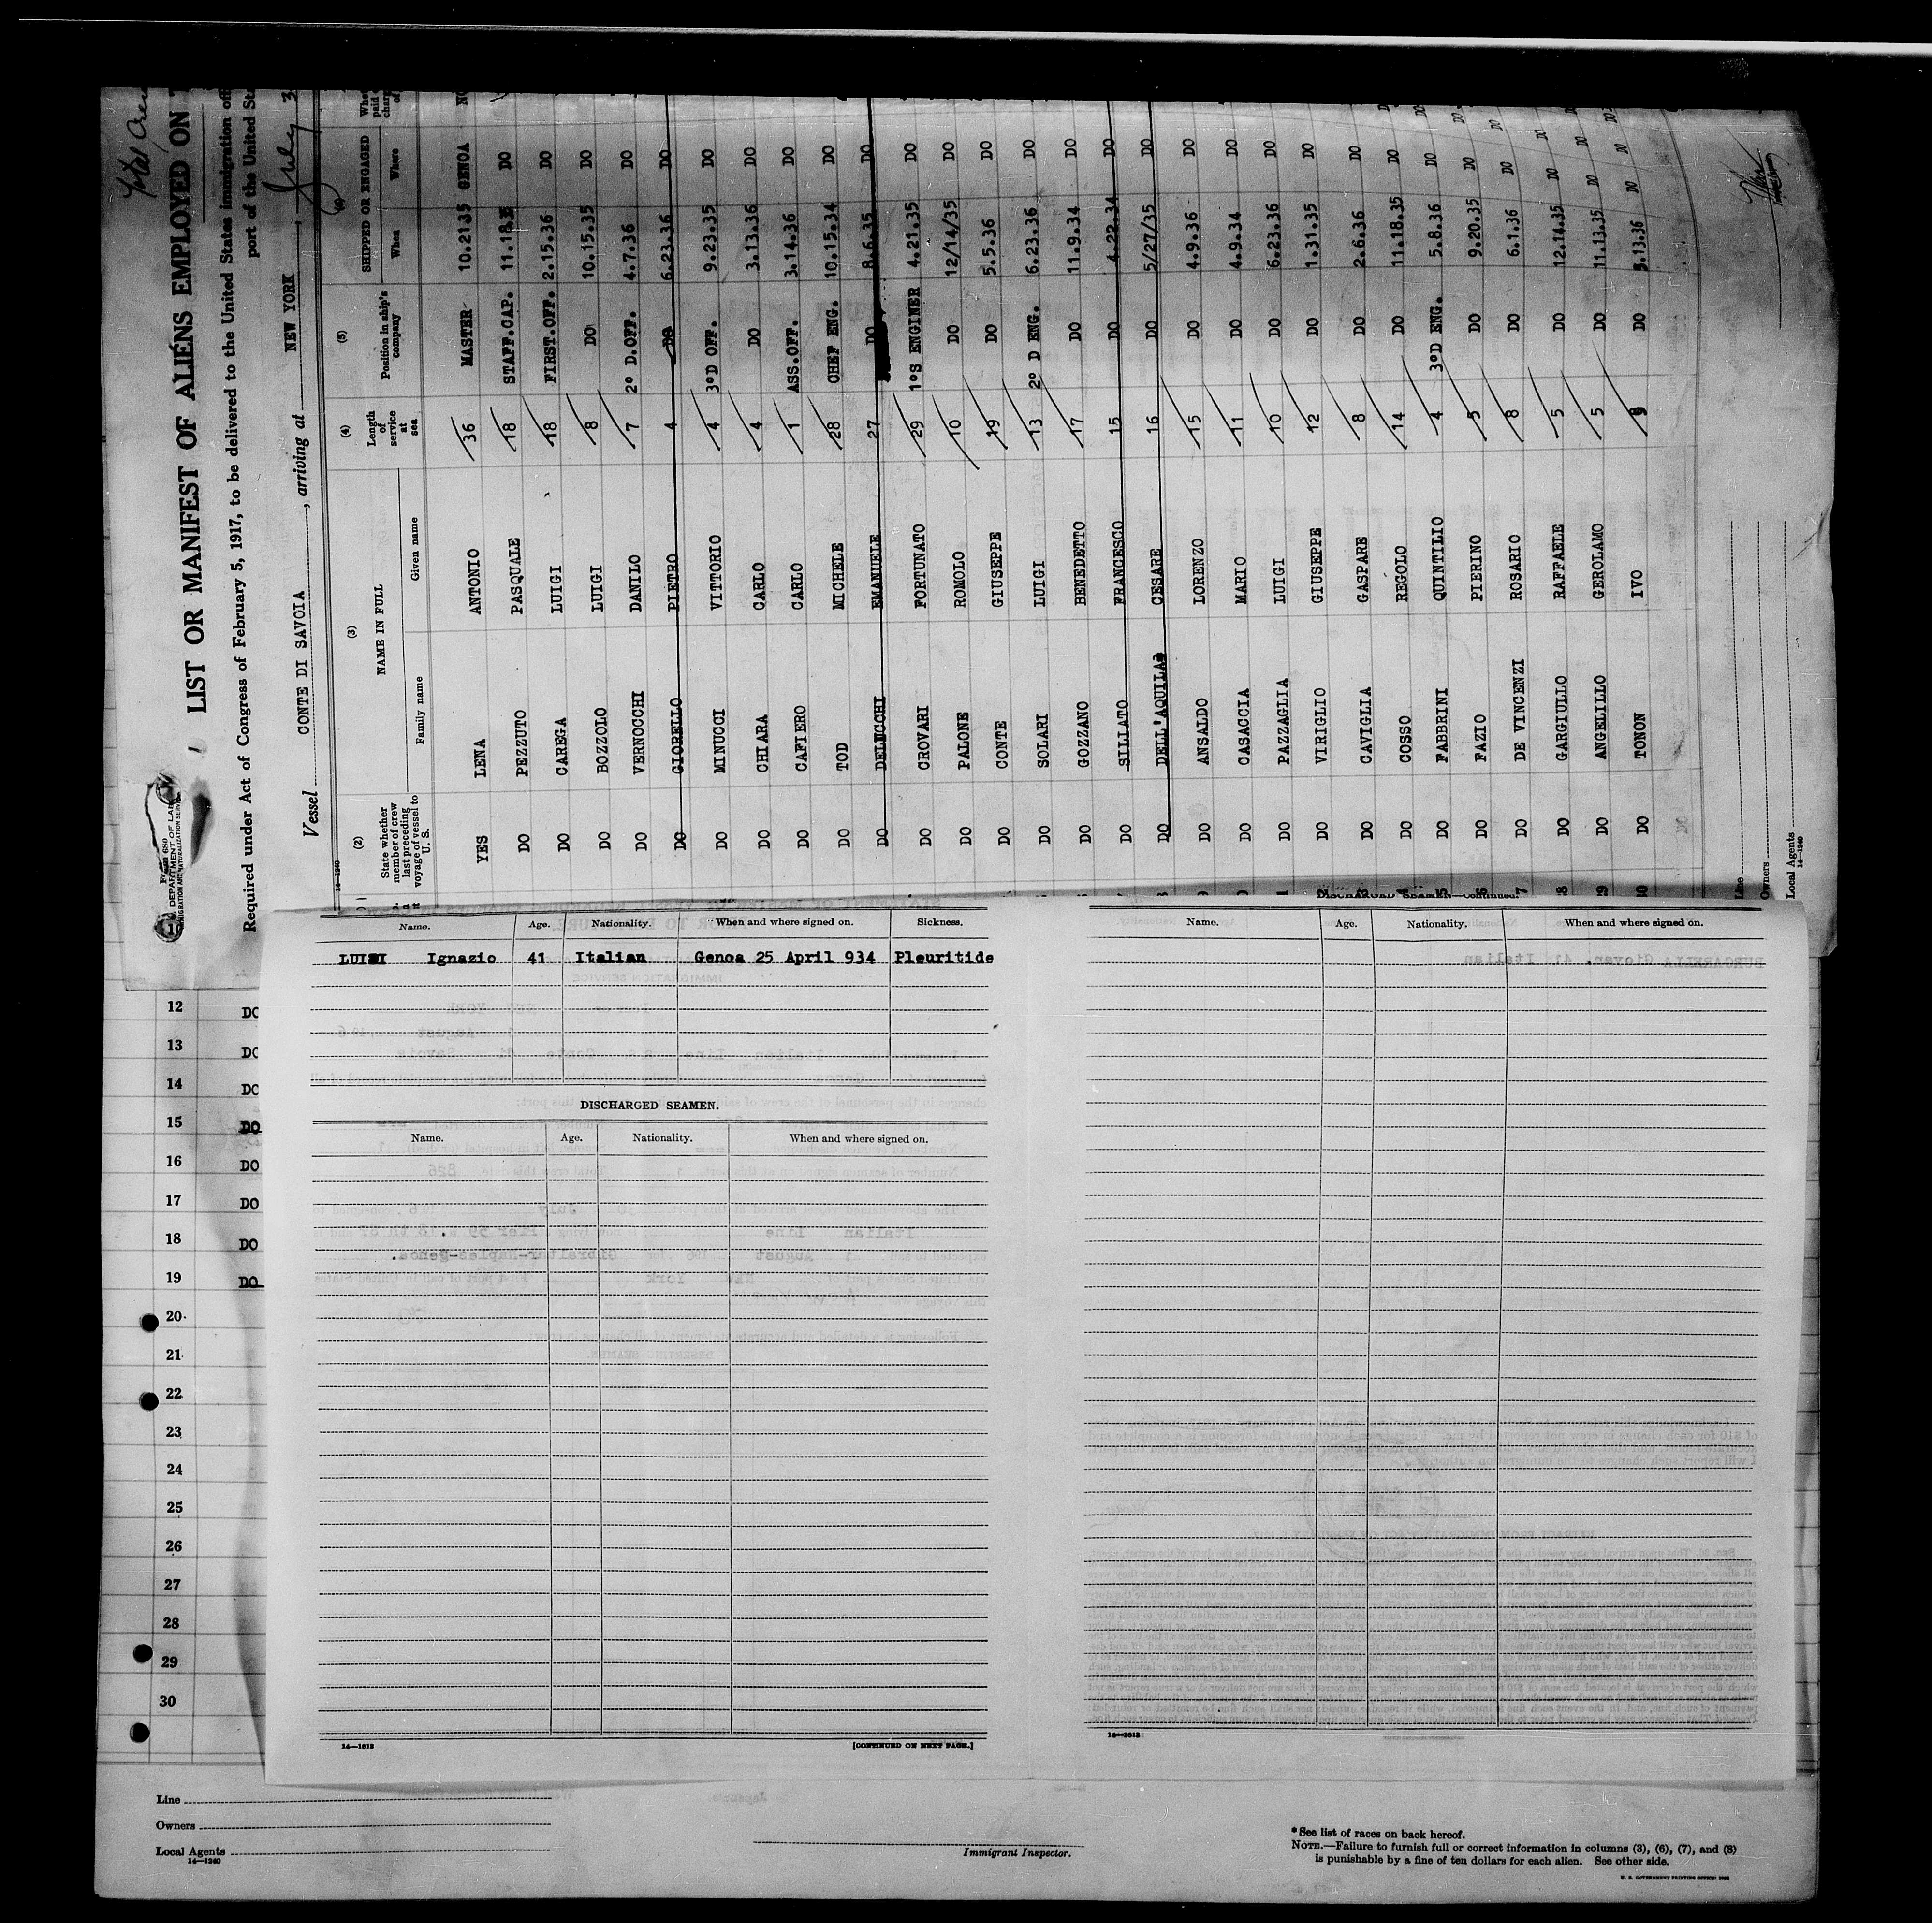 Total Crew
LIST OR MANIFEST OF ALIENS EMPLOYED ON
Required under Act of Congress of February 5, 1917, to be delivered to the United States immigration
port of the United
Vessel CONTE DI SAVOIA, arriving at NEW YORK, July 3
DEPARTMENT OF
14—1240
(2) (3) (4) (5) (6)
State whether member of crew last preceding voyage of vessel to U. S. NAME IN FULL Length of service at sea Position in ship's company SHIPPED OR ENGAGED
Family name Given name When Where
YES LENA ANTONIO 36 MASTER 10.21.35 GENOA
DO PEZZUTO PASQUALE 18 STAFF.CAP. DO
DO CAREGA LUIGI 18 FIRST.OFF. 2.15.36 DO
DO BOZZOLO LUIGI 8 DO 10.15.35 DO
DO VERNOCCHI DANILO 7 2° D.OFF. 4.7.36 DO
DO GIORELLO PIETRO 4 DO 6.23.36 DO
DO MINUCCI VITTORIO 4 3°D OFF. 9.23.35 DO
DO CHIARA CARLO 4 DO 3.13.36 DO
DO CAFIERO CARLO 1 ASS.OFF. 3.14.36 DO
DO TOD MICHELE 28 CHEF ENG. 10.15.34 DO
DO DELUCCHI EMANUELE 27 DO 8.6.35 DO
DO CROVARI FORTUNATO 29 1°S ENGINER 4.21.35 DO
DO PALONE ROMOLO 10 DO 12/14/35 DO
DO CONTE GIUSEPPE 19 DO 5.5.36 DO
DO SOLARI LUIGI 13 2° D ENG. 6.23.36 DO
DO GOZZANO BENEDETTO 17 DO 11.9.34 DO
DO SILIATO FRANCESCO 15 DO 4.22.34 DO
DO DELL'AQUILA CESARE 16 DO 5/27/35 DO
DO ANSALDO LORENZO 15 DO 4.9.36 DO
DO CASACCIA MARIO 11 DO 4.9.34 DO
DO PAZZAGLIA LUIGI 10 DO 6.23.36 DO
DO VIRIGLIO GIUSEPPE 12 DO 1.31.35 DO
DO CAVIGLIA GASPARE 8 DO 2.6.36 DO
DO COSSO REGOLO 14 DO 11.18.35 DO
DO FABBRINI QUINTILIO 4 3°D ENG. 5.8.36 DO
DO FAZIO PIERINO 5 DO 9.20.35 DO
DO DE VINCENZI ROSARIO 8 DO 6.1.36 DO
DO GARGIULLO RAFFAELE 5 DO 12.14.35 DO
DO ANGELILLO GEROLAMO 5 DO 11.13.35 DO
DO TONON IVO DO DO
Line
Owners
Local Agents
14—1240
Name. Age. Nationality. When and where signed on. Sickness.
LUISI Ignazio 41 Italian Genoa 25 April 934 Pleuritide
DISCHARGED SEAMEN.
Name. Age. Nationality. When and where signed on.
14—1613 [CONTINUED ON NEXT PAGE.]
DISCHARGED SEAMEN—Continued.
Name. Age. Nationality. When and where signed on.
14—1613
12 DO
13 DO
14 DO
15 DO
16 DO
17 DO
18 DO
19 DO
20
21
22
23
24
25
26
27
28
29
30
Line
Owners
Local Agents
14—1240
Immigrant Inspector.
*See list of races on back hereof.
NOTE.—Failure to furnish full or correct information in columns (3), (6), (7), and (8)
is punishable by a fine of ten dollars for each alien. See other side.
U. S. GOVERNMENT PRINTING OFFICE: